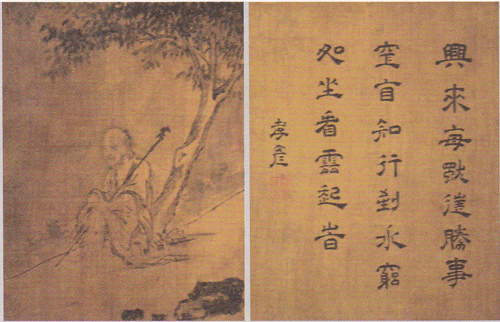 興來每獨往勝事
空自知行到水窮
処坐看雲起旹